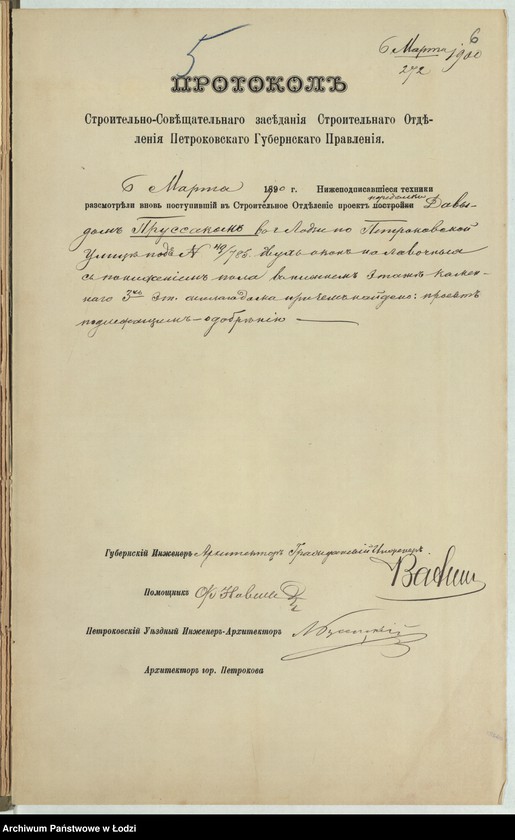 5
6
6 Марта 1900
272
ПРОТОКОЛЪ
Строительно-Совѣщательнаго засѣданія Строительнаго Отдѣ-
ленія Петроковскаго Губернскаго Правленія.
6 Марта 1890 г. Нижеподписавшіеся техники
передѣлки
разсмотрѣли вновь поступившій въ Строительное Отдѣленіе проектъ постройки Давы-
домъ Пруссакомъ въ г. Лодзи по Петроковской
улицѣ подъ № 49/786 двухъ оконъ на лавочныя
съ пониженіемъ пола въ нижнемъ этажѣ камен-
наго 3хъ эт. дома причемъ найдено: проектъ
подлежащимъ одобренію
Губернскій Инженеръ Архитекторъ Гражданскій Инженеръ
Помощникъ
Петроковскій Уѣздный Инженеръ-Архитекторъ
Архитекторъ гор. Петрокова
Archiwum Państwowe w Łodzi